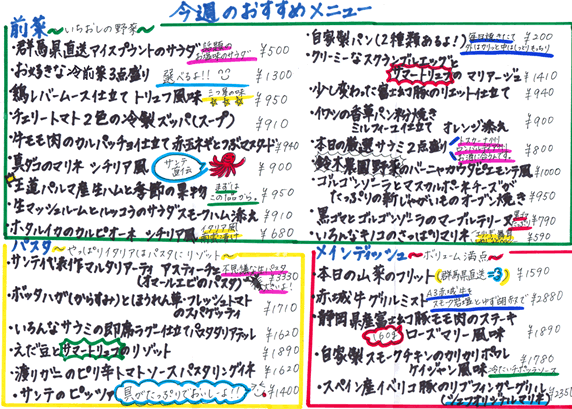 今週のおすすめメニュー
前菜〜いちおしの野菜〜
・群馬県直送アイスプラントのサラダ 話題の お塩味のサラダ ¥500
・お好きな冷前菜3点盛り 選べるよ!! ¥1300
・鶏レバームース仕立て トリュフ風味 三つ星の味 ¥950
・チェリートマト2色の冷製ズッパ(スープ) ¥910
・牛モモ肉のカルパッチョ仕立て 赤玉ネギとつぶマスタード ¥940
・真ダコのマリネ シチリア風 サンテ直伝 ¥900
・王道パルマ産生ハムと季節の果物 まずはこの1品から。 ¥950
・生マッシュルームとルッコラのサラダスモークハム添え ¥910
・ホタルイカのカルピオーネ シチリア風 イタリア風 ¥680
・自家製パン(2種類あるよ!) 毎日焼きたて 外はカリッと中はしっとりもっちり ¥200
・クリーミーなスクランブルエッグと
サマートリュフのマリアージュ ¥1410
・少し変わった富士幻豚のリエット仕立て ¥940
・イワシの香草パン粉焼き
ミルフィーユ仕立て オレンジ添え ¥900
・本日の厳選サラミ2点盛り ¥800
・鈴木農園野菜のバーニャカウダピエモンテ風 ¥1000
・ゴルゴンゾーラとマスカルポーネチーズが
たっぷりの新じゃがいものオーブン焼き ¥950
・黒ゴマとゴルゴンゾーラのマーブルテリーヌ ¥790
・いろんなキノコのさっぱりマリネ ¥590
パスタ〜やっぱりイタリアはパスタにリゾット〜
・サンテ代表作マルタリアーティ アスティーチェ 不思議な生パスタ
(オマールエビのパスタ) ¥3330
・ボッタルガ(からすみ)とほうれん草・フレッシュトマト
のスパゲッティ ¥1710
・いろんなサラミの即席ラグー仕立てパスタタリアテッレ ¥1620
・えだ豆とサマートリュフのリゾット ¥1890
・渡りガニのピリ辛トマトソースパスタリングイネ ¥1620
・サンテのピッツァ 具がたっぷりでおいしーよ!! ¥1400
メインディッシュ〜ボリューム満点〜
・本日の山菜のフリット(群馬県直送) ¥1590
・赤城牛グリルミスト A3赤城出を スモーク岩塩とゆず胡椒で ¥2880
・静岡県産富士幻豚モモ肉のステーキ
160g ローズマリー風味 ¥1890
・自家製スモークチキンのカリカリポワレ ¥1780
ケイジャン風味 冷たいチポラソース
・スペイン産イベリコ豚のリブフィンガーグリル
(シェフオリジナルマリネ) ¥2350